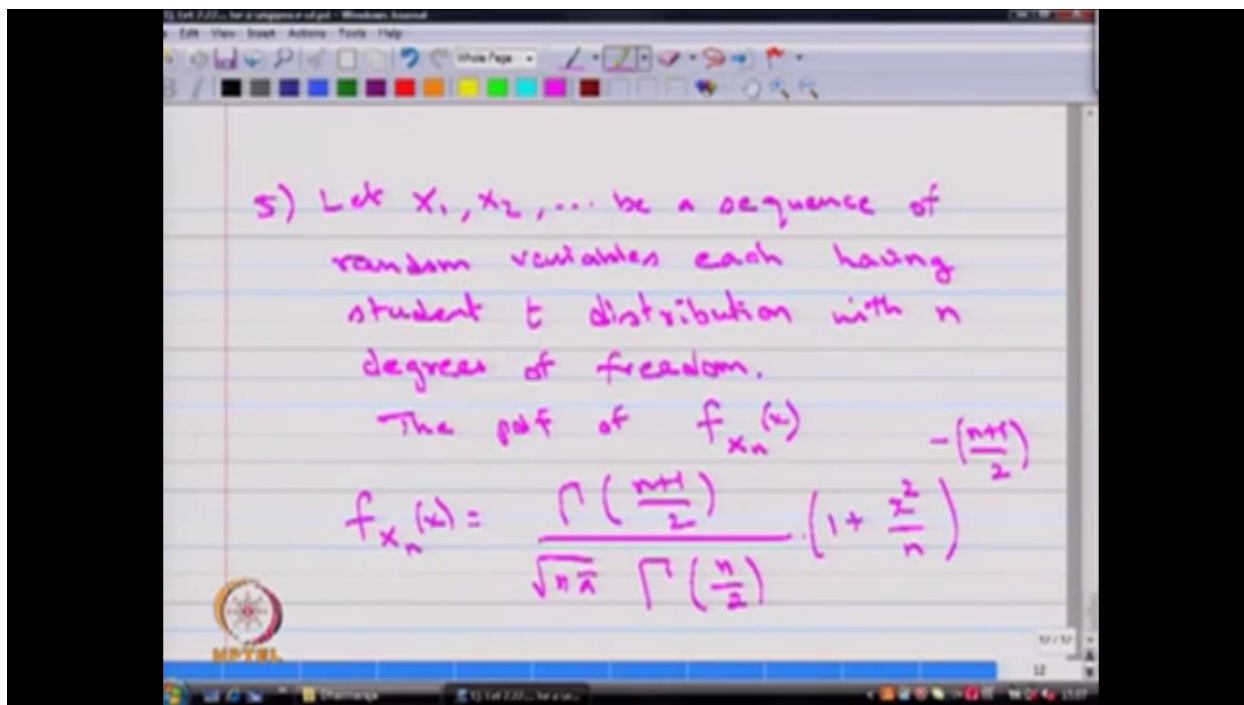 Windows Journal
Edit View Insert Actions Tools Help
Whole Page
5) Let X₁, X₂, ... be a sequence of
random variables each having
student t distribution with n
degrees of freedom.
The pdf of f_{X_n}(x)
f_{X_n}(x) = Γ((n+1)/2) / (√(nπ) Γ(n/2)) · (1 + x²/n)^{-((n+1)/2)}
NPTEL
12